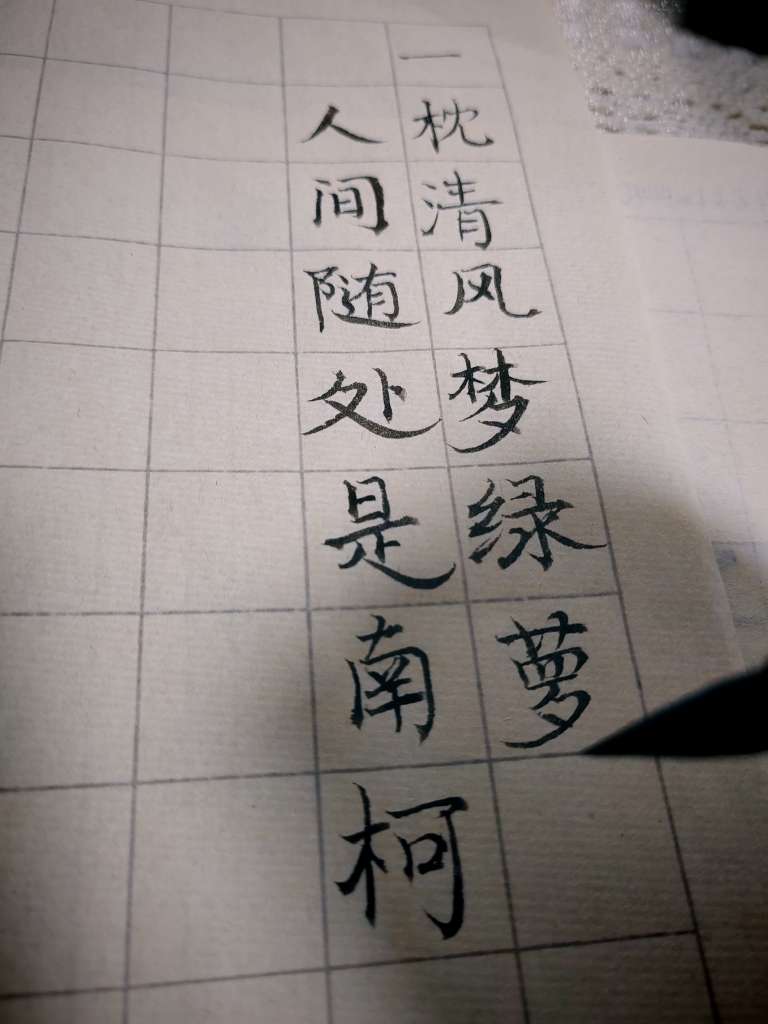 一枕清风梦绿萝
人间随处是南柯